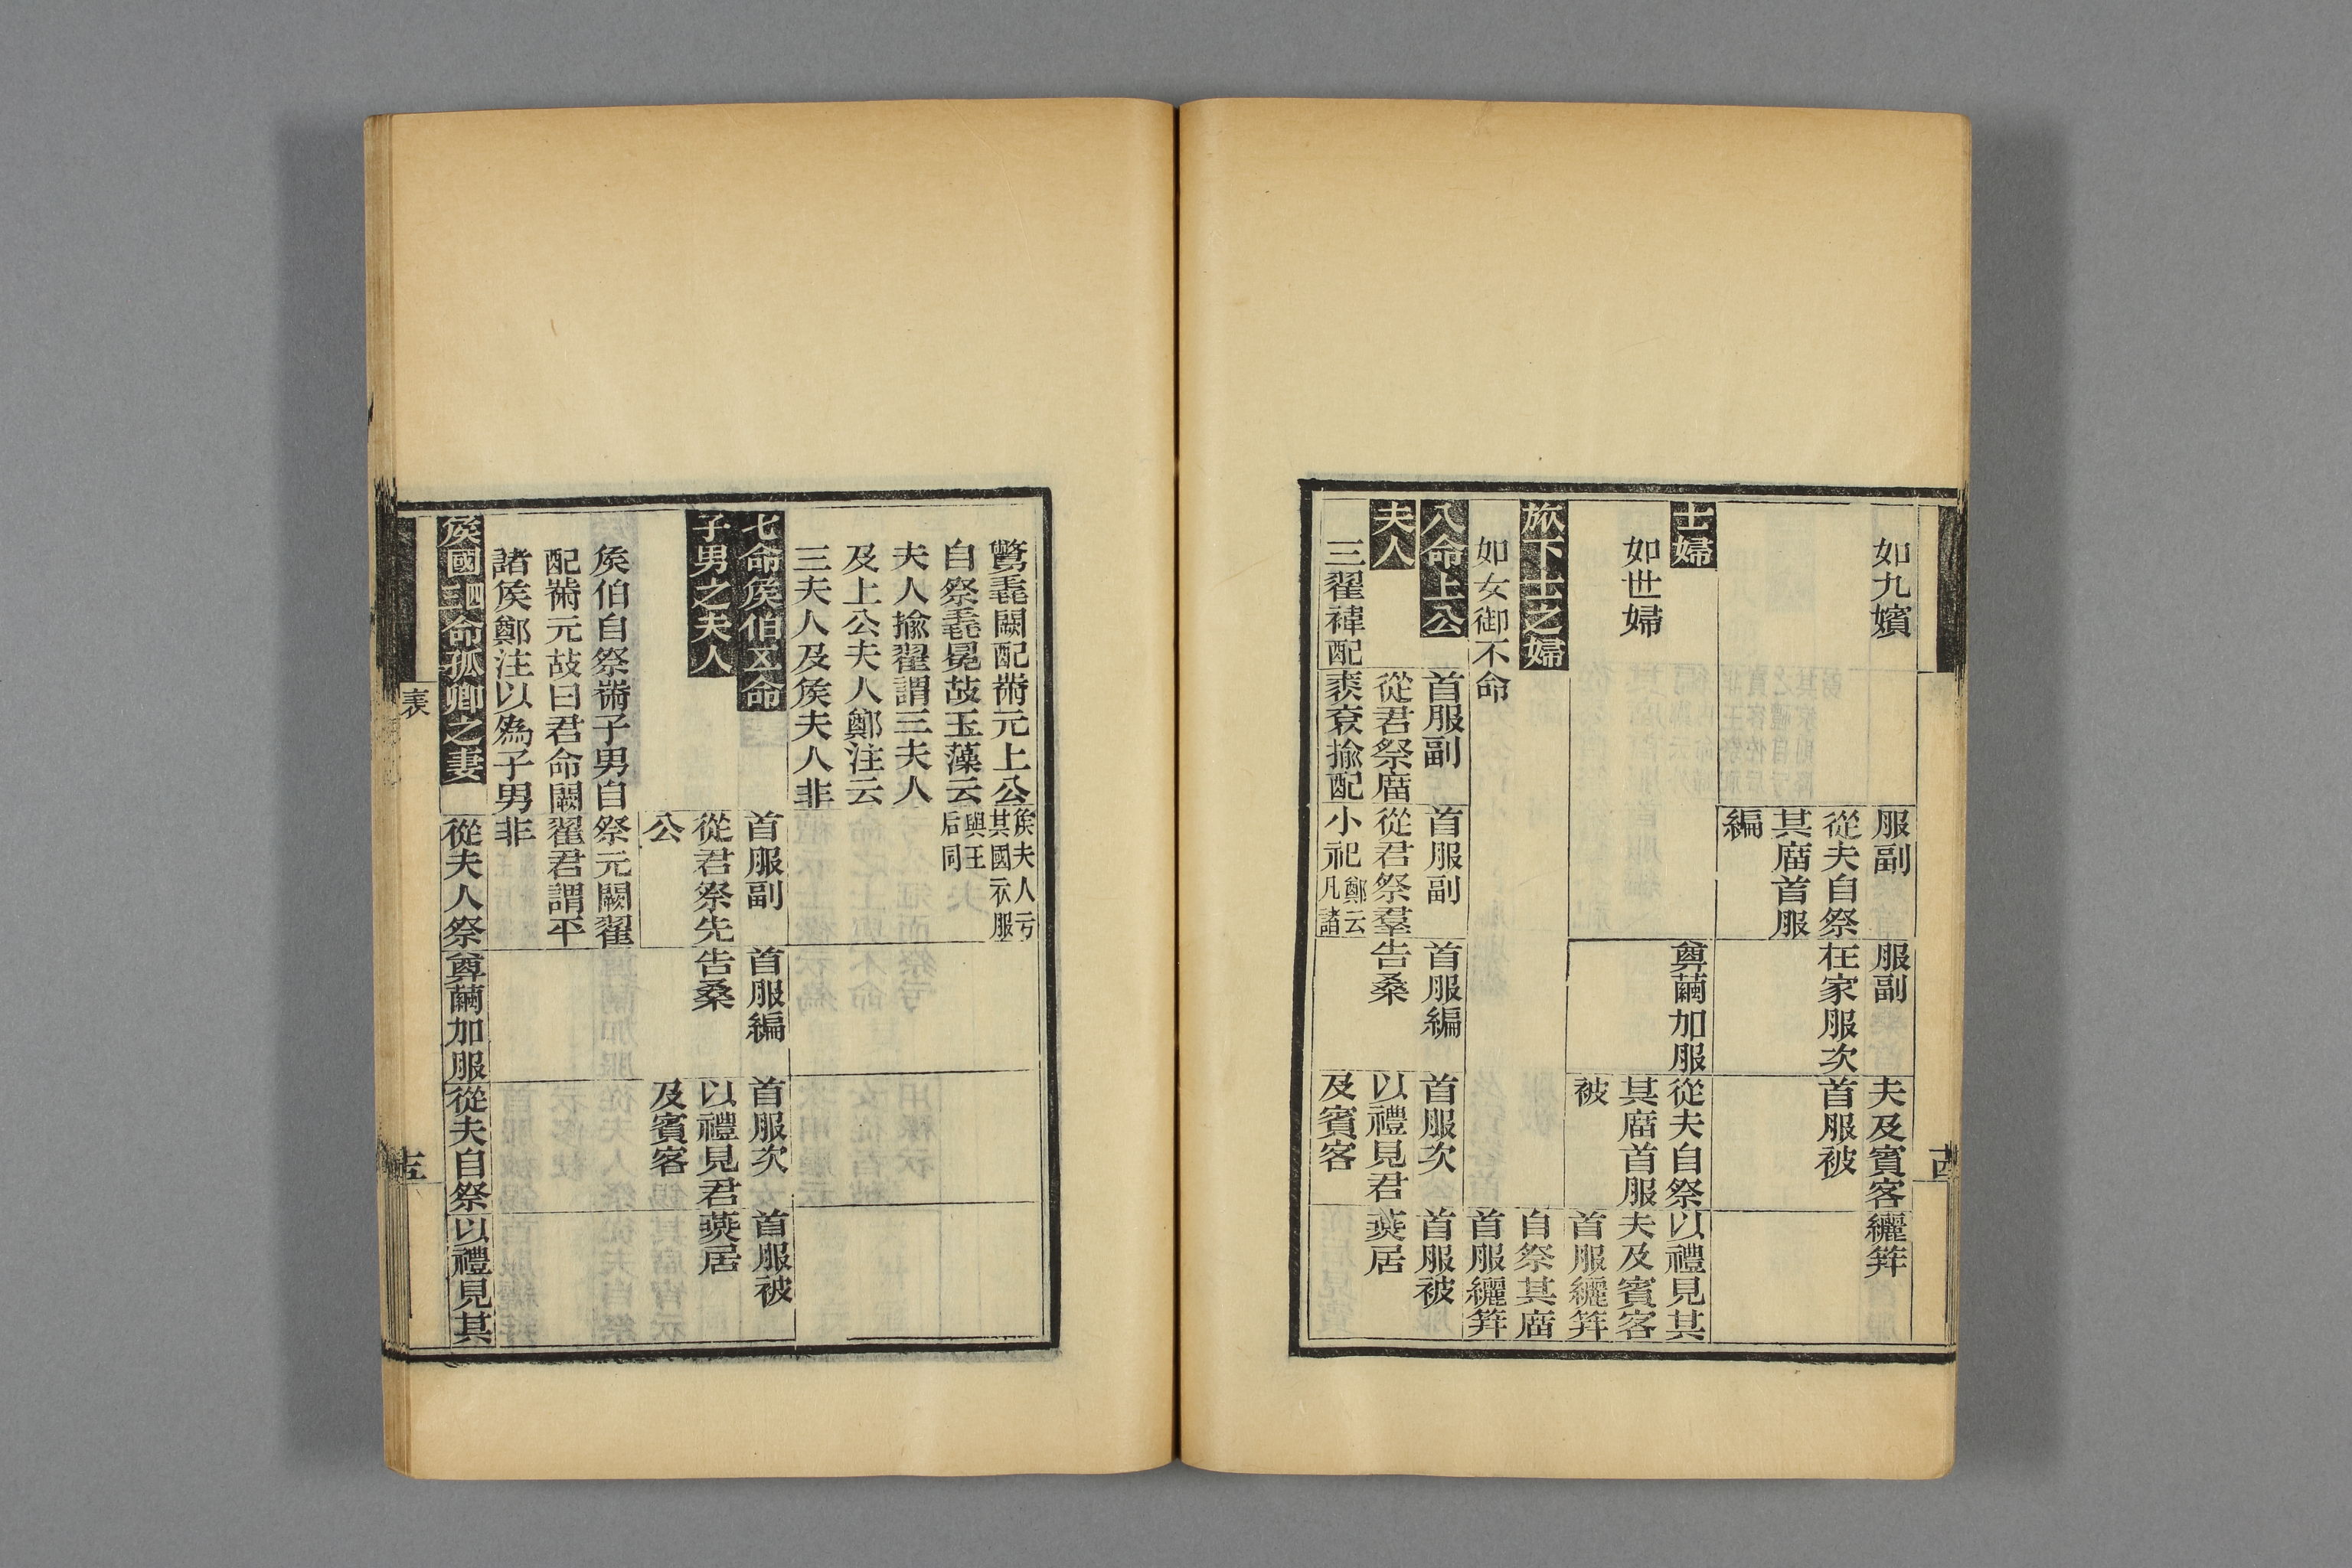 如九嬪 服副 服副 夫及賓客 纚笄
從夫自祭 在家服次 首服被
其庿首服
編
士婦 繭加服 從夫自祭 以禮見其
如世婦 其庿首服 夫及賓客
被 首服纚笄
旅下士之婦 自祭其庿
如女御不命 首服纚笄
八命上公 首服副 首服副 首服編 首服次 首服被
夫人 從君祭庿 從君祭羣 告桑 以禮見君 燕居
三翟褘配 裘袞揄配 小祀 鄭云凡諸 及賓客
鷩毳闕配黹元上公 矦夫人亏其國衣服
自祭毳冕故玉藻云 與王后同
夫人揄翟謂三夫人
及上公夫人鄭注云
三夫人及矦夫人非
七命矦伯五命 首服副 首服編 首服次 首服被
子男之夫人 從君祭先 告桑 以禮見君 燕居
公 及賓客
矦伯自祭黹子男自祭元闕翟
配黹元故曰君命闕翟君謂平
諸矦鄭注以為子男非
矦國四三命孤卿之妻 從夫人祭 繭加服 從夫自祭 以禮見其
表